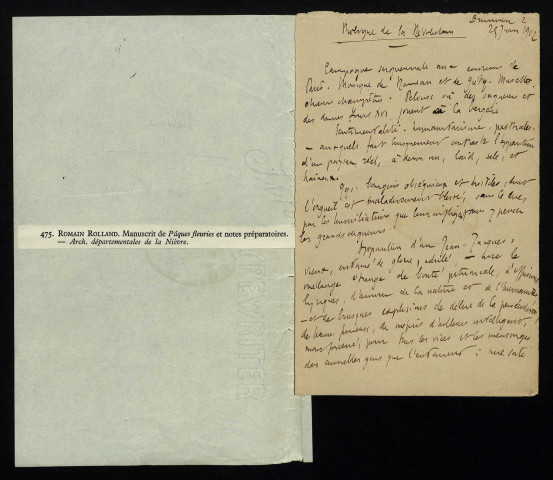 475. ROMAIN ROLLAND. Manuscrit de Pâques fleuries et notes préparatoires.
— Arch. départementales de la Nièvre.
2
25 juin 1902
Prologue de la Révolution
Campagne aux environs de
Paris. Musique de Rameau et de Grétry.
champêtres. Pelouse où des seigneurs et
des dames Louis XVI jouent à la bergerie
Sentimentalité. humanitarisme. pastorales.
— auxquels fait brusquement contraste l'apparition
d'un paysan réel, à demi nu, laid, sale, et
haineux.
Qqs. bourgeois obséquieux et hostiles, dont
l'orgueil est maladivement blessé,
par les humiliations que leur infligent
les grands seigneurs.
Apparition d'un Jean-Jacques,
vieux, entouré de gloire, adulé, — avec le
mélange étrange de bonté patriarcale, d'effusions
lyriques, d'amour de la nature et de l'humanité,
— et de brusques explosions de délire de la persécution,
de haine furieuse, de mépris d'ailleurs intelligent,
mais forcené, pour tous les vices et les mensonges
des aimables gens qui l'entourent : une sorte